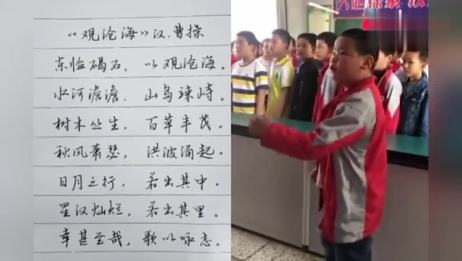 《观沧海》汉.曹操
东临碣石，以观沧海。
水何澹澹，山岛竦峙。
树木丛生，百草丰茂。
秋风萧瑟，洪波涌起。
日月之行，若出其中。
星汉灿烂，若出其里。
幸甚至哉，歌以咏志。